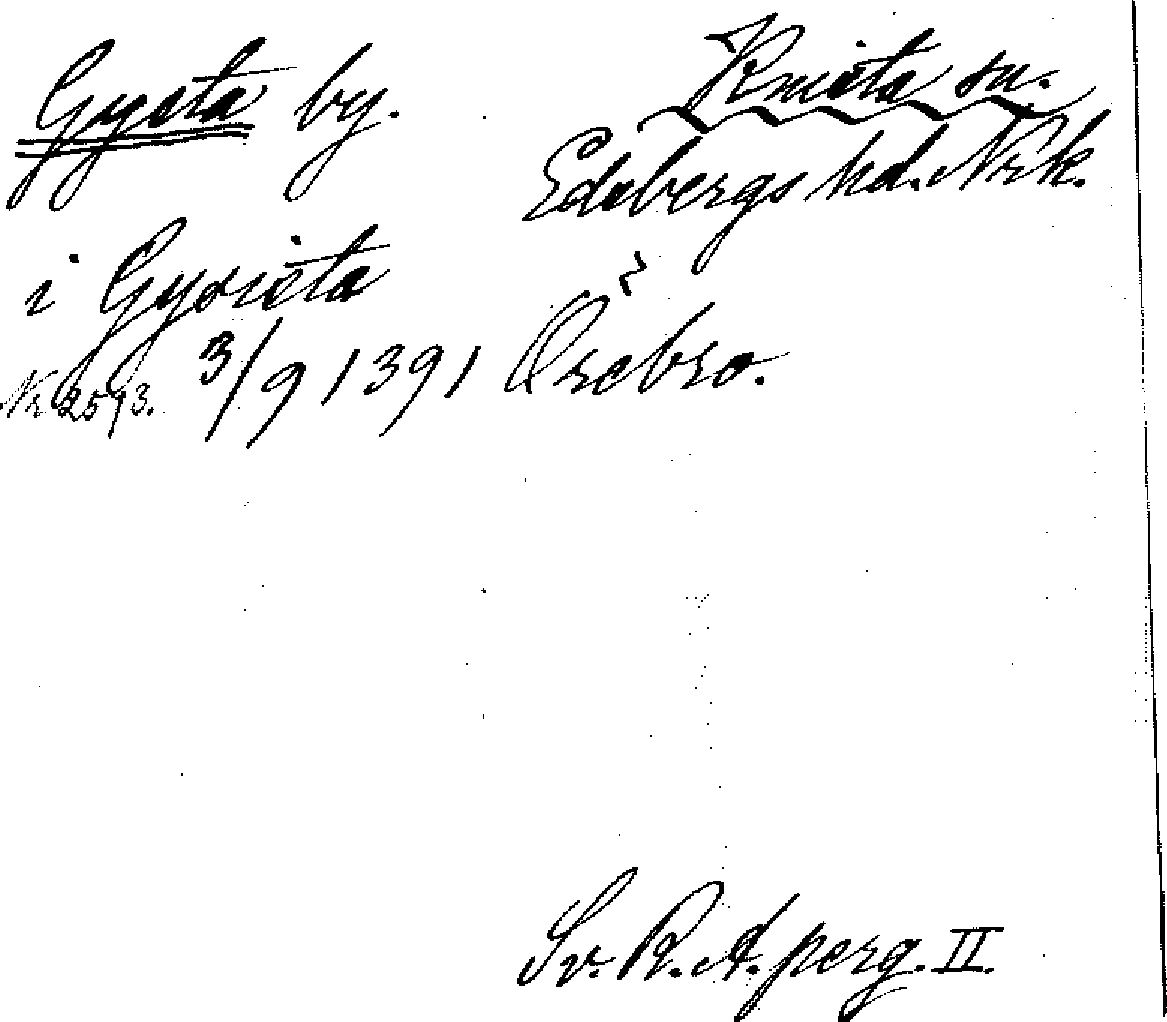 Gysta by. Knista sn.
Edsbergs hd. Nrk.
i Gysista
Nr 2593. 3/9 1391 Örebro.
Sv. R. A. perg. II.